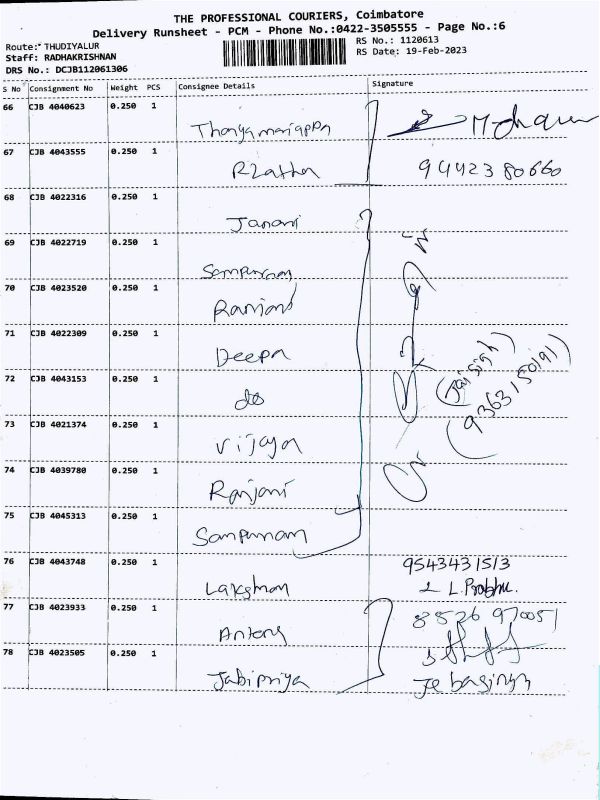 THE PROFESSIONAL COURIERS, Coimbatore
Delivery Runsheet - PCM - Phone No.:0422-3505555 - Page No.:6
Route: THUDIYALUR
RS No.: 1120613
Staff: RADHAKRISHNAN
RS Date: 19-Feb-2023
DRS No.: DCJB112061306
S No Consignment No Weight PCS Consignee Details Signature
66 CJB 4040623 0.250 1
Mohan
67 CJB 4043555 0.250 1
9442380660
68 CJB 4022316 0.250 1
Janani
69 CJB 4022719 0.250 1
Sampurnam
70 CJB 4023520 0.250 1
Ranjani
71 CJB 4022309 0.250 1
Deepa
(Jaisigh)
72 CJB 4043153 0.250 1
do
(9363150191)
73 CJB 4021374 0.250 1
Vijaya
74 CJB 4039780 0.250 1
Ranjani
75 CJB 4045313 0.250 1
Sampurnam
76 CJB 4043748 0.250 1
9543431513
Lakshman
L. Prabhu.
77 CJB 4023933 0.250 1
8526970051
Antony
78 CJB 4023505 0.250 1
Jabipriya
Jebasingh